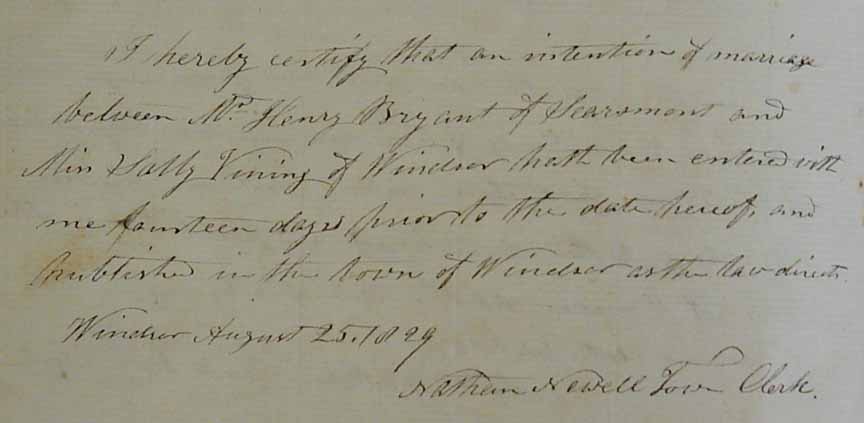 I hereby certify that an intention of marriage
between Mr. Henry Bryant of Searsmont and
Miss Sally Vining of Windsor hath been entered with
me fourteen days prior to the date hereof, and
published in the town of Windsor as the law directs.
Windsor August 25. 1829
Nathan Newell Town Clerk.